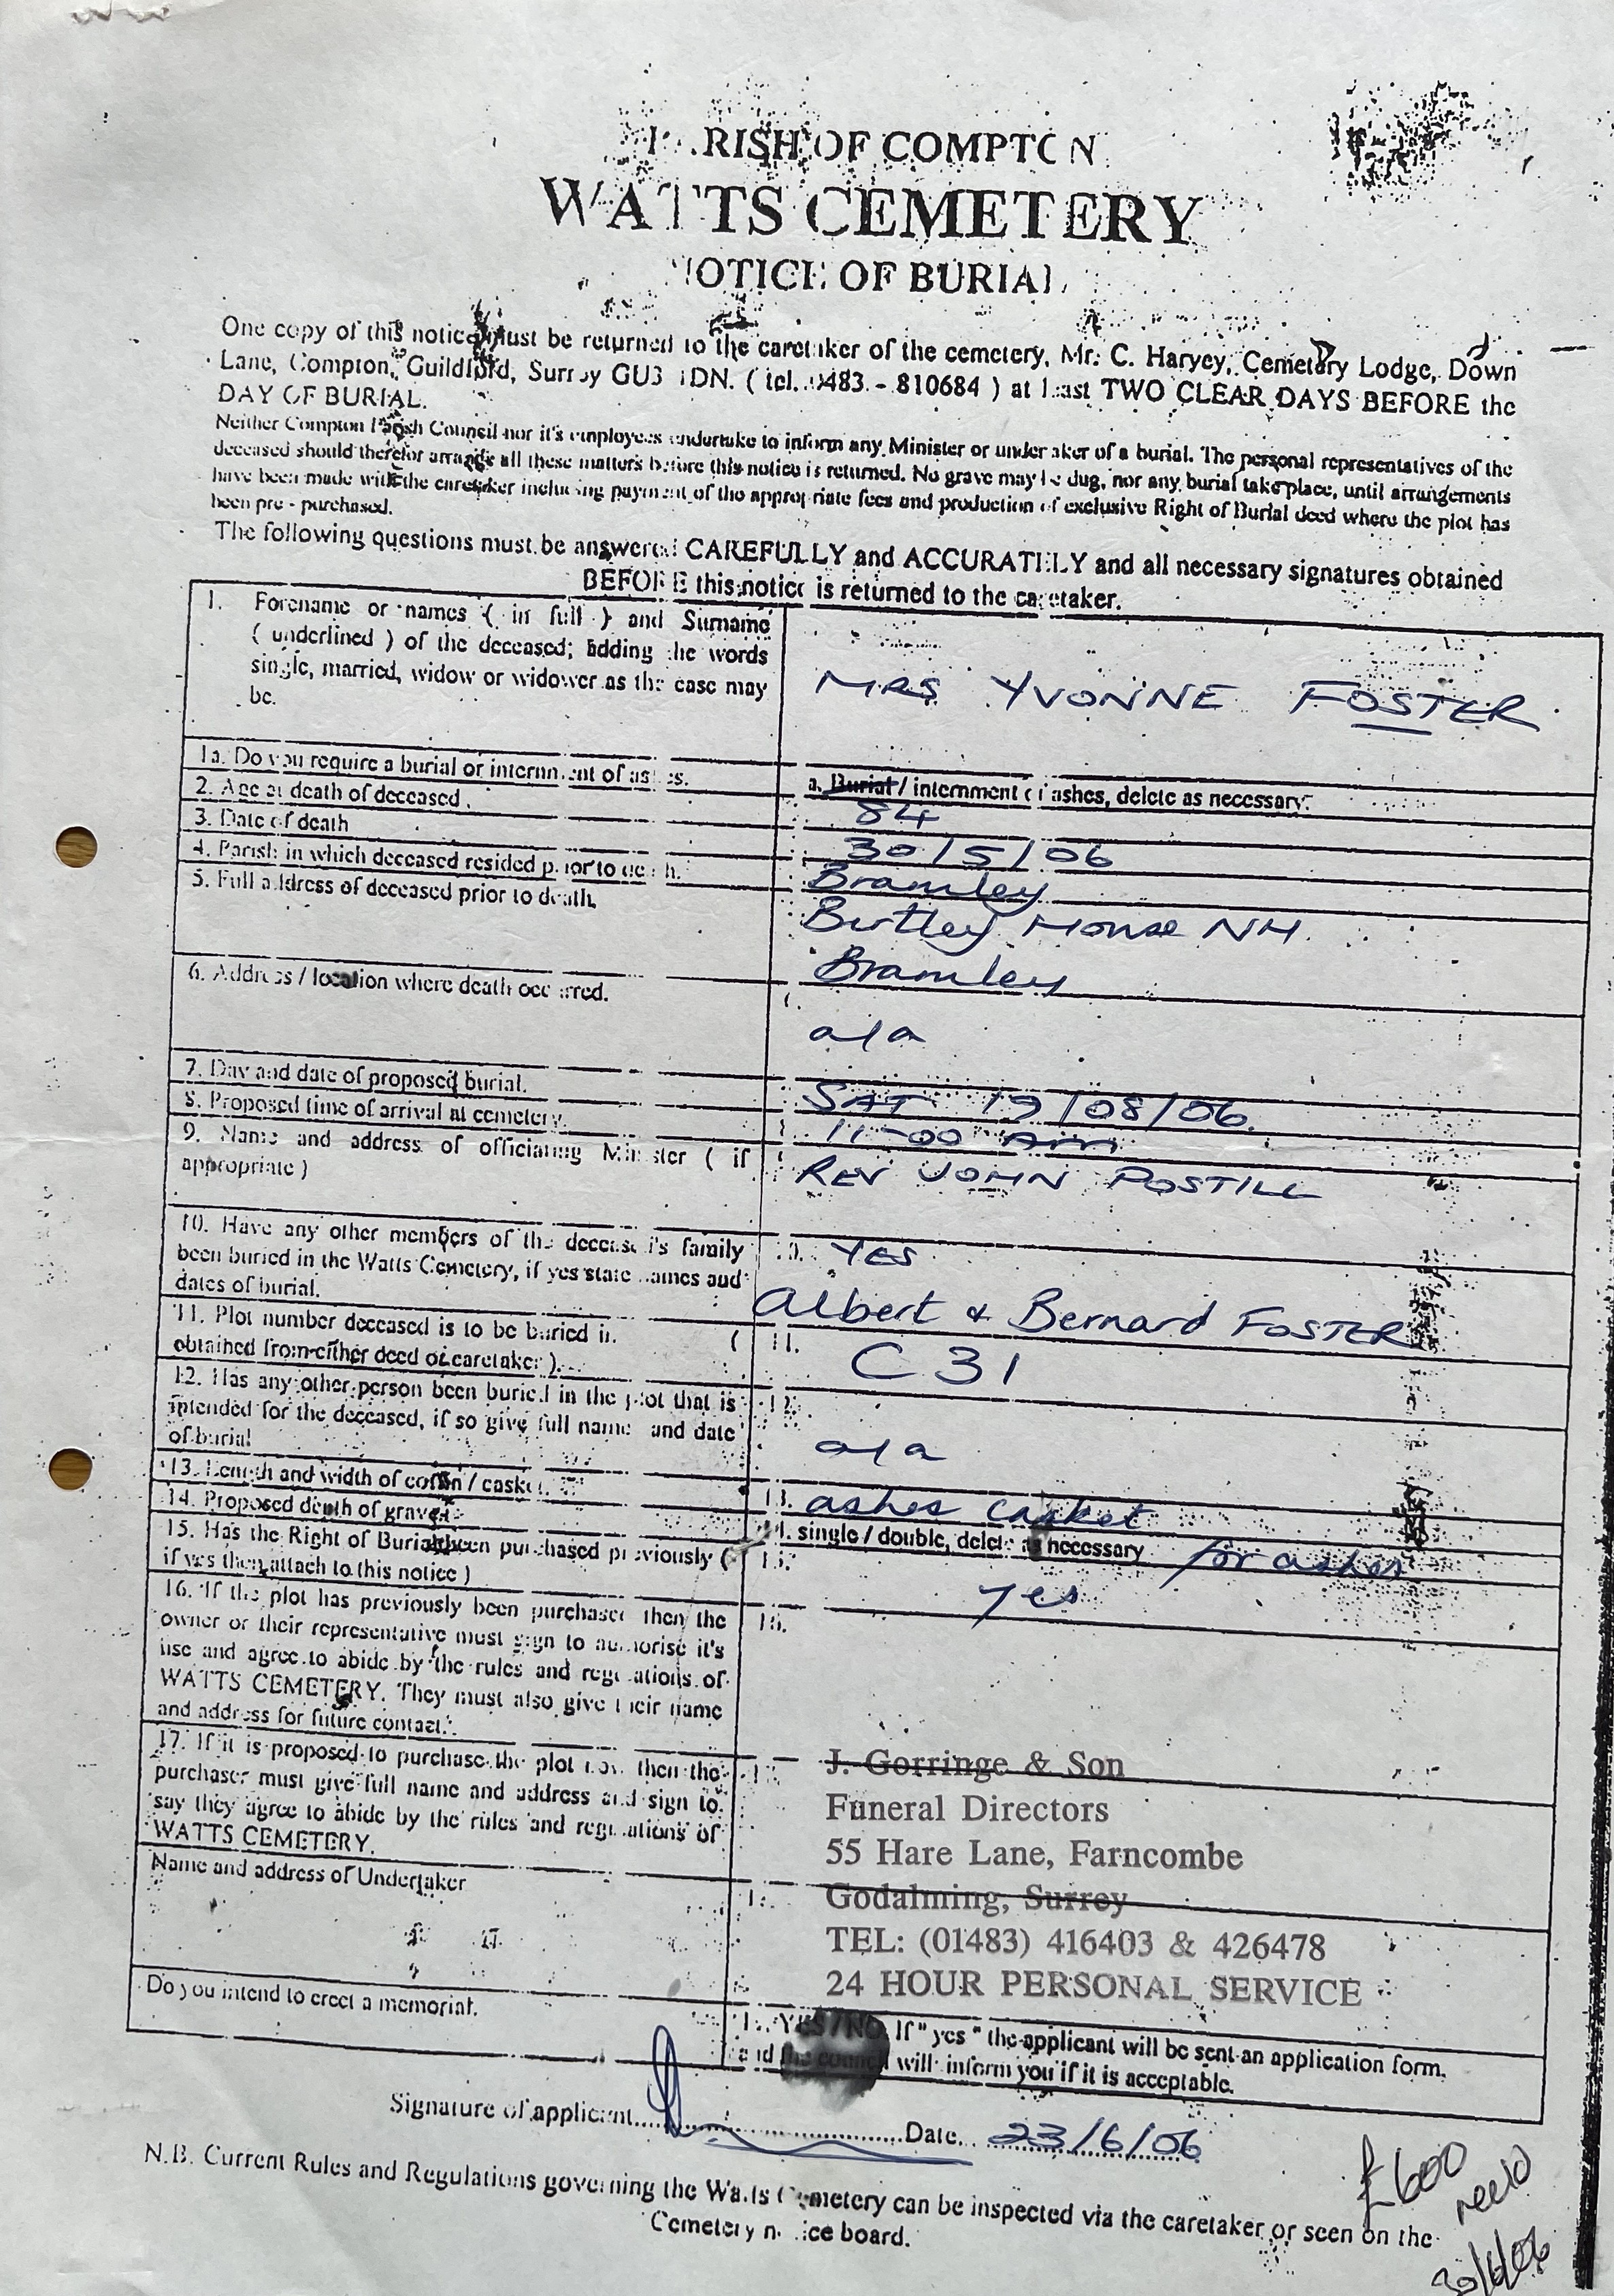 PARISH OF COMPTON
WATTS CEMETERY
NOTICE OF BURIAL
One copy of this notice must be returned to the caretaker of the cemetery, Mr. C. Harvey, Cemetery Lodge, Down
Lane, Compton, Guildford, Surrey GU3 1DN. ( tel. 0483 - 810684 ) at least TWO CLEAR DAYS BEFORE the
DAY OF BURIAL.
Neither Compton Parish Council nor it's employees undertake to inform any Minister or undertaker of a burial. The personal representatives of the
deceased should therefor arrange all these matters before this notice is returned. No grave may be dug, nor any burial take place, until arrangements
have been made with the caretaker including payment of the appropriate fees and production of exclusive Right of Burial deed where the plot has
been pre - purchased.
The following questions must be answered CAREFULLY and ACCURATELY and all necessary signatures obtained
BEFORE this notice is returned to the caretaker.
1. Forename or names ( in full ) and Surname
( underlined ) of the deceased; adding the words
single, married, widow or widower as the case may
be.
MRS YVONNE FOSTER
1a. Do you require a burial or internment of ashes.
a. Burial / internment of ashes, delete as necessary.
2. Age at death of deceased.
84
3. Date of death
30/5/06
4. Parish in which deceased resided prior to death.
Bramley
5. Full address of deceased prior to death.
Birtley House NH.
Bramley
6. Address / location where death occurred.
a/a
7. Day and date of proposed burial.
SAT 19/08/06.
8. Proposed time of arrival at cemetery.
11-00 am
9. Name and address of officiating Minister ( if
appropriate )
REV JOHN POSTILL
10. Have any other members of the deceased's family
been buried in the Watts Cemetery, if yes state names and
dates of burial.
10. YES
Albert & Bernard FOSTER
11. Plot number deceased is to be buried in. (
obtained from either deed or caretaker ).
11.
C 31
12. Has any other person been buried in the plot that is
intended for the deceased, if so give full name and date
of burial
12.
a/a
13. Length and width of coffin / casket.
13. ashes casket
14. Proposed depth of grave.
14. single / double, delete as necessary for ashes
15. Has the Right of Burial been purchased previously (
if yes then attach to this notice )
15.
yes
16. If the plot has previously been purchased then the
owner or their representative must sign to authorise it's
use and agree to abide by the rules and regulations of
WATTS CEMETERY. They must also give their name
and address for future contact.
16.
17. If it is proposed to purchase the plot now then the
purchaser must give full name and address and sign to
say they agree to abide by the rules and regulations of
WATTS CEMETERY.
J. Gorringe & Son
Funeral Directors
55 Hare Lane, Farncombe
Godalming, Surrey
TEL: (01483) 416403 & 426478
24 HOUR PERSONAL SERVICE
Name and address of Undertaker
Do you intend to erect a memorial.
YES/NO. If " yes " the applicant will be sent an application form,
and the council will inform you if it is acceptable.
Signature of applicant.............................Date... 23/6/06
N.B. Current Rules and Regulations governing the Watts Cemetery can be inspected via the caretaker or seen on the
Cemetery notice board.
£600
recd
30/6/06